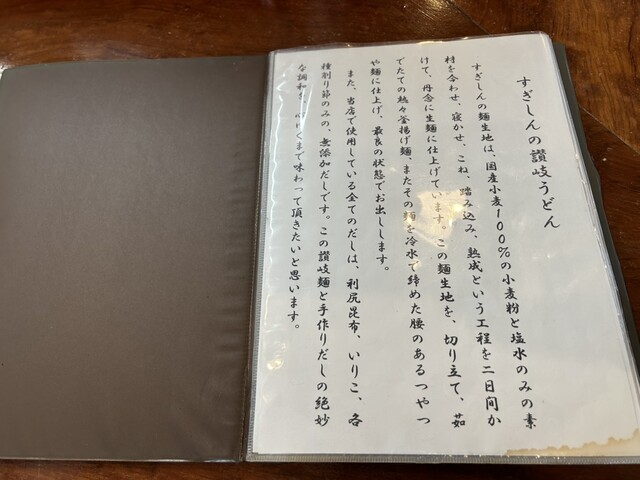 すぎしんの讃岐うどん
すぎしんの麺生地は、国産小麦100%の小麦粉と塩水のみの素
材を合わせ、寝かせ、こね、踏み込み、熟成という工程を二日間か
けて、丹念に生麺に仕上げています。この麺生地を、切り立て、茹
でたての熱々釜揚げ麺、またその麺を冷水で締めた腰のあるつやつ
や麺に仕上げ、最良の状態でお出しします。
また、当店で使用している全てのだしは、利尻昆布、いりこ、各
種削り節のみの、無添加だしです。この讃岐麺と手作りだしの絶妙
な調和を、心ゆくまで味わって頂きたいと思います。